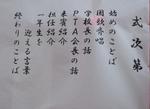 式次第
始めのことば
国歌斉唱
学校長の話
PTA会長の話
来賓紹介
担任紹介
一年生を
迎える言葉
終りのことば